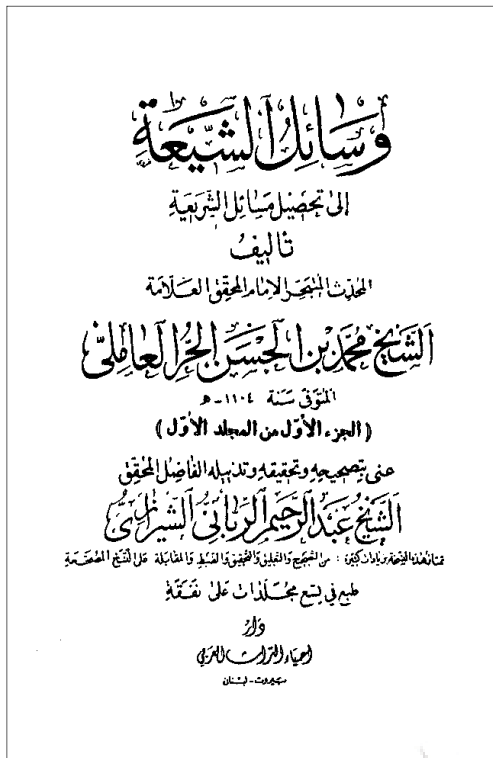 وسائل الشيعة
إلى تحصيل مسائل الشريعة
تأليف
المحدث المتبحر الإمام المحقق العلامة
الشيخ محمد بن الحسن الحر العاملي
المتوفى سنة ١١٠٤ - ه
(الجزء الأول من المجلد الأول)
عنى بتصحيحه وتحقيقه وتذييله الفاضل المحقق
الشيخ عبد الرحيم الرباني الشيرازي
تمتاز هذه النسخة بزيادات كثيرة : من التصحيح والتعليق والتحقيق والضبط والمقابلة على النسخ المصححة
طبع في تسع مجلدات على نفقة
دار
احياء التراث العربي
بيروت - لبنان